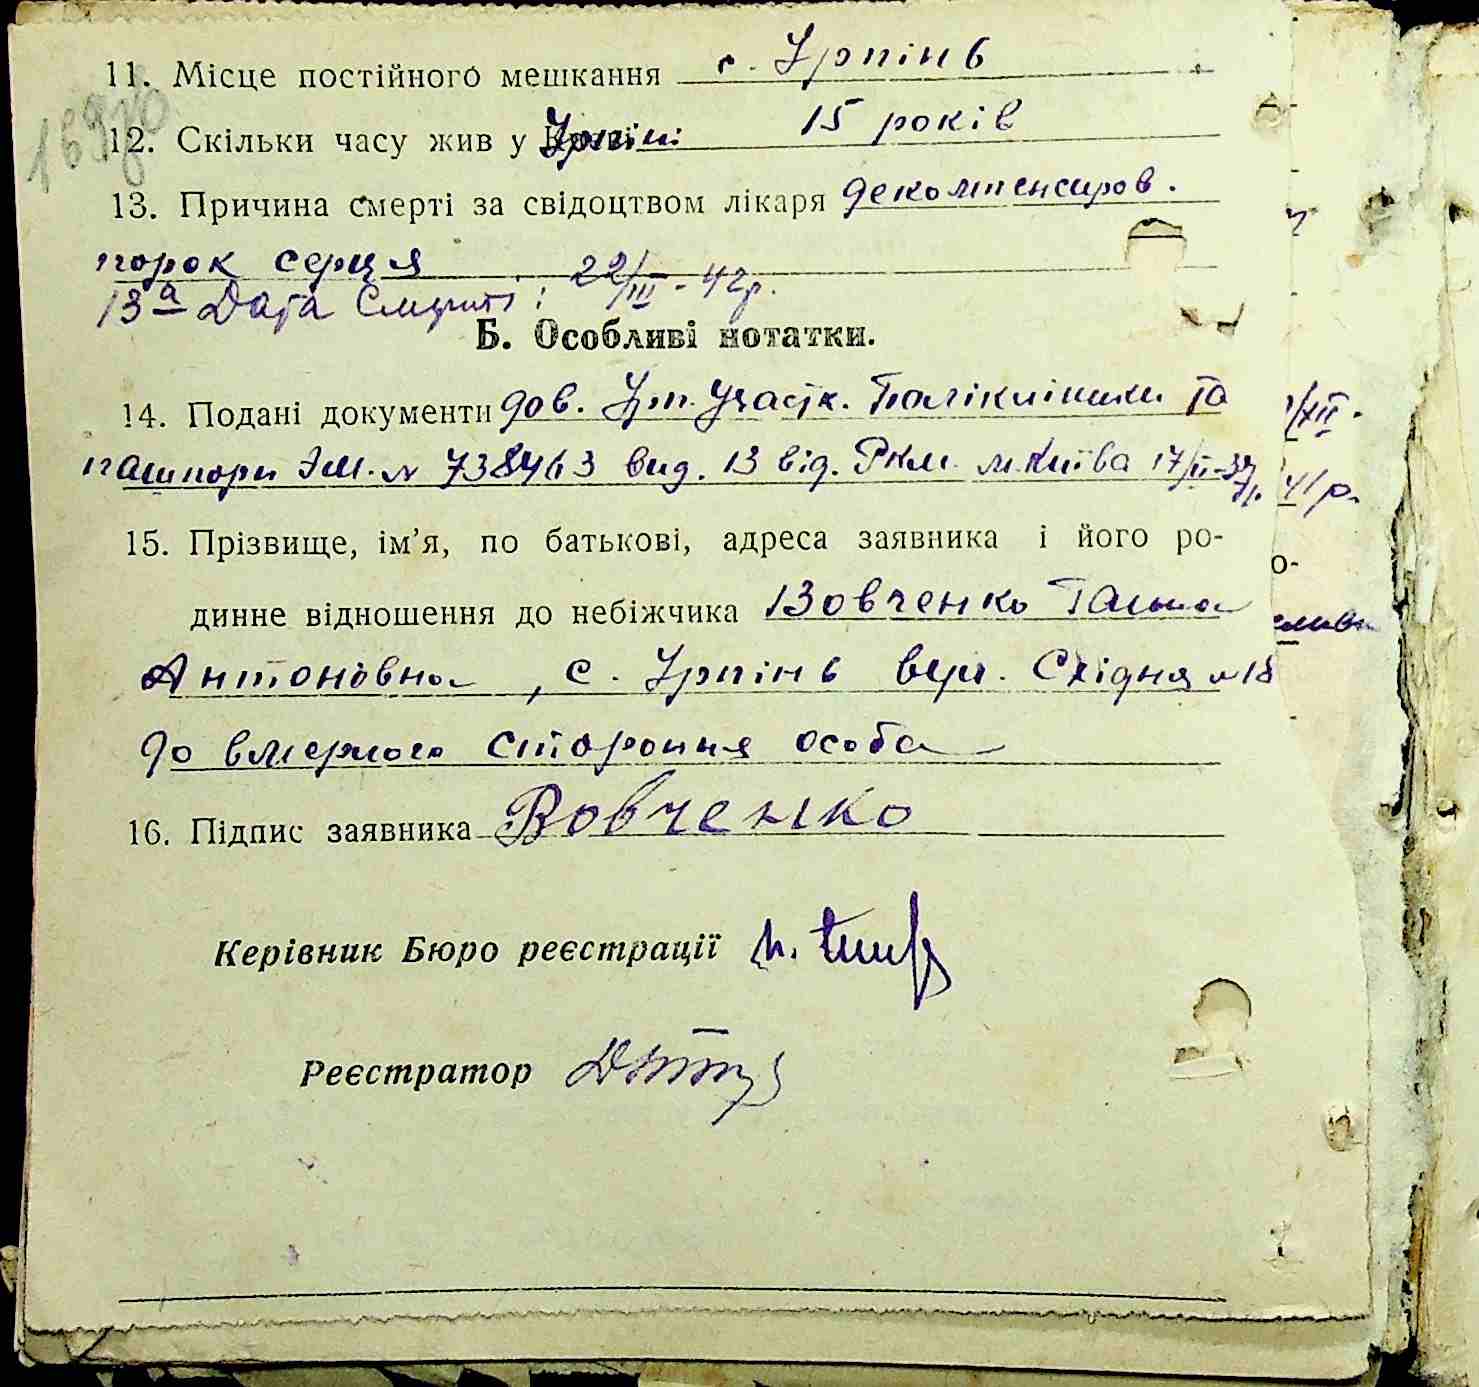 11. Місце постійного мешкання с. Ірпінь
12. Скільки часу жив у Ірпіні 15 років
13. Причина смерті за свідоцтвом лікаря декомпенсиров.
порок серця
13а Дата Смерті: 22/III - 42р.
Б. Особливі нотатки.
14. Подані документи дов. Ірп. Участк. Поліклініки та
пашпорт ЭМ. № 738463 вид. 13 від. Ркм. м. Київа 17/II-37р.
15. Прізвище, ім’я, по батькові, адреса заявника і його ро-
динне відношення до небіжчика Вовченко Галина
Антоновна, с. Ірпінь вул. Східня № 18
до вмерлого стороння особа
16. Підпис заявника Вовченко
Керівник Бюро реєстрації
Реєстратор